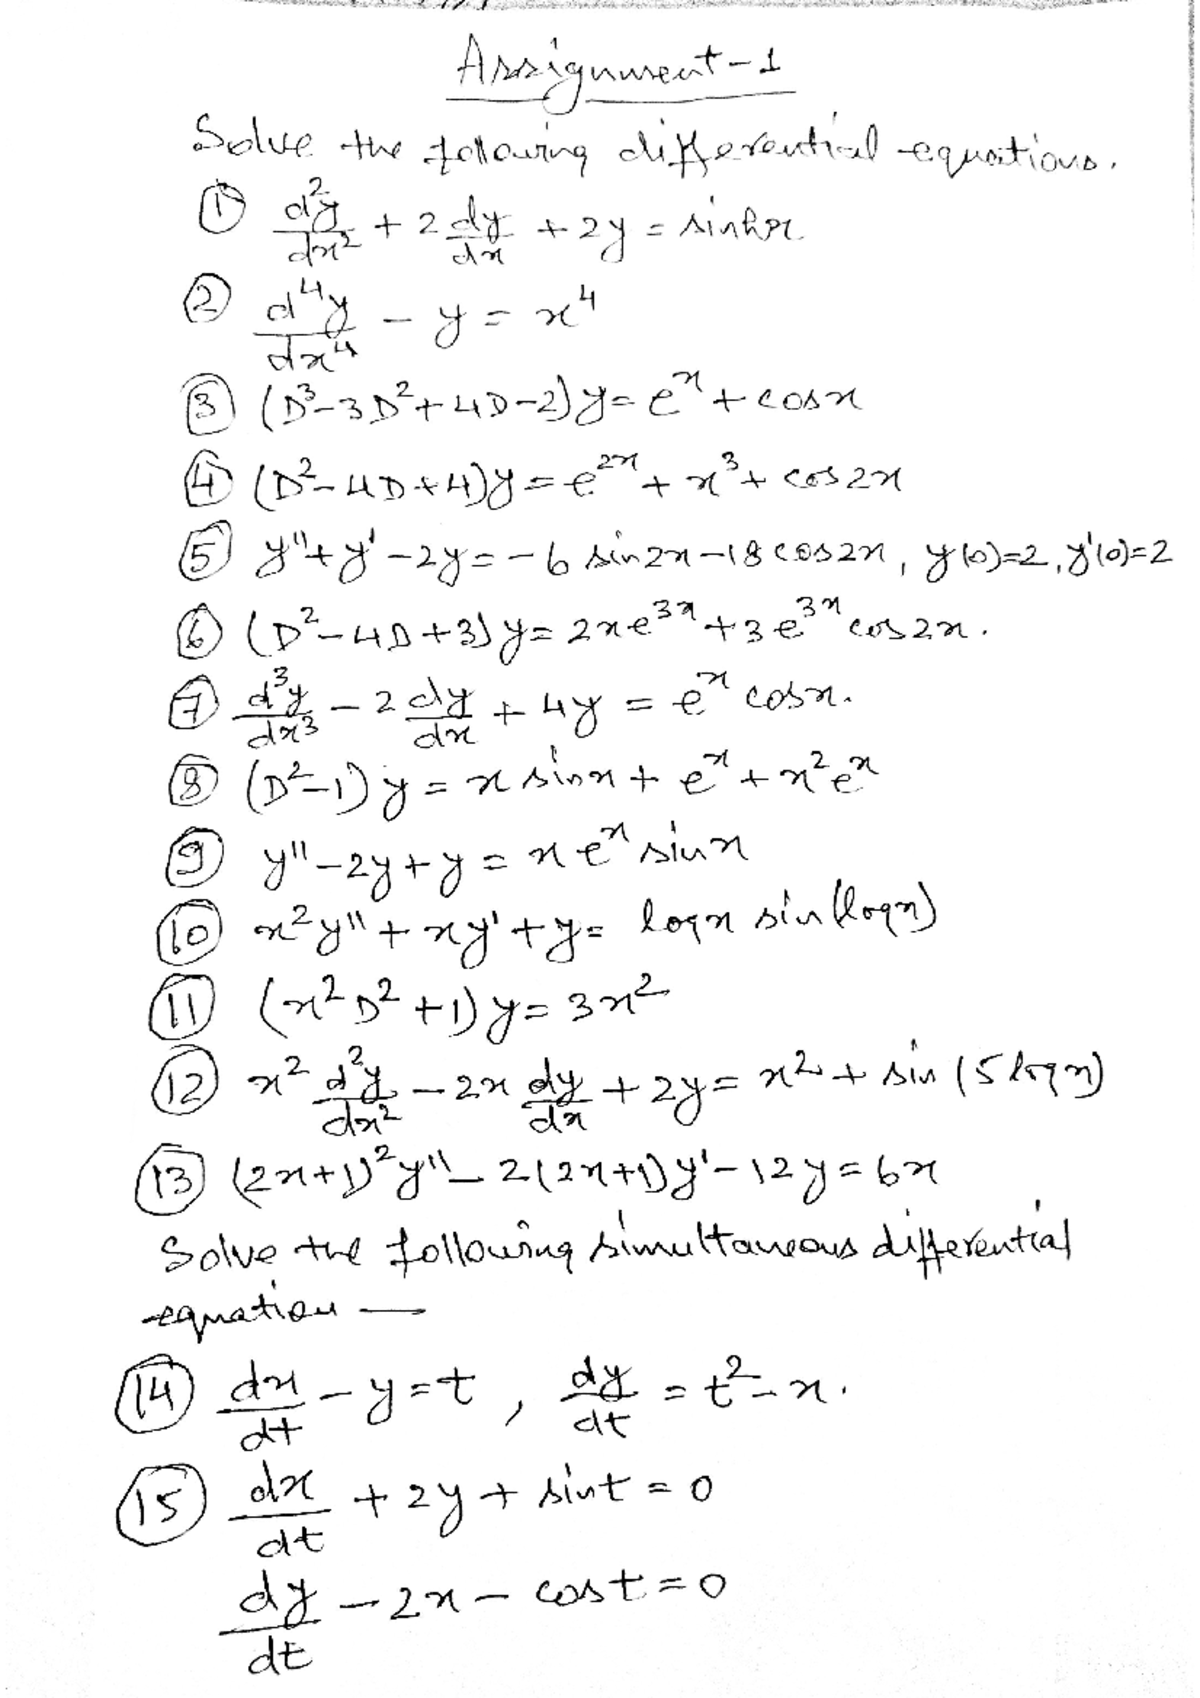 Assignment-1
Solve the following differential equations.
① d²y/dx² + 2 dy/dx + 2y = sinhx
② d⁴y/dx⁴ - y = x⁴
③ (D³-3D²+4D-2)y = eˣ + cosx
④ (D²-4D+4)y = e²ˣ + x³ + cos2x
⑤ y''+y'-2y = -6 sin2x-18cos2x, y(0)=2, y'(0)=2
⑥ (D²-4D+3)y = 2xe³ˣ + 3e³ˣ cos2x.
⑦ d³y/dx³ - 2 dy/dx + 4y = eˣ cosx.
⑧ (D²-1)y = x sinx + eˣ + x²eˣ
⑨ y''-2y+y = x eˣ sinx
⑩ x²y''+xy'+y = logx sin(logx)
⑪ (x²D²+1)y = 3x²
⑫ x² d²y/dx² - 2x dy/dx + 2y = x² + sin(5logx)
⑬ (2x+1)²y'' - 2(2x+1)y' - 12y = 6x
Solve the following simultaneous differential
equation —
⑭ dx/dt - y = t, dy/dt = t² - x.
⑮ dx/dt + 2y + sint = 0
dy/dt - 2x - cost = 0